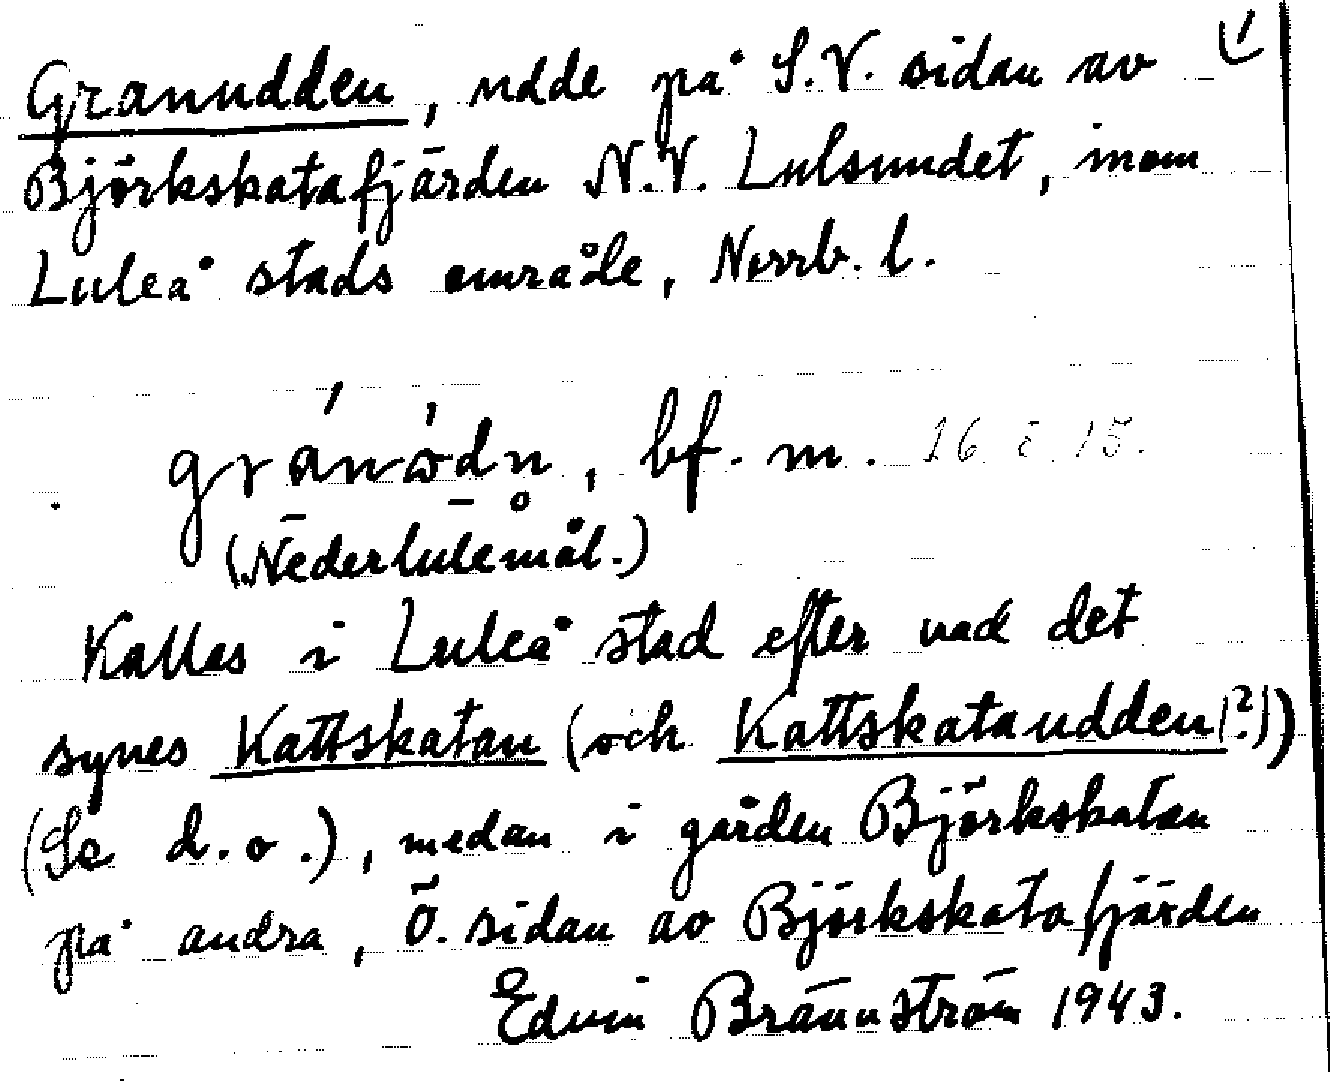 Granudden, udde på S.V. sidan av
Björkskatafjärden N.V. Lulsundet, inom
Luleå stads område, Norrb. l.
gránòdn, bf. m. 16 E 15.
(Nederlulemål.)
Kallas i Luleå stad efter vad det
synes Kattskatan (och Kattskataudden(?))
(Se d.o.), medan i gården Björkskatan
på andra, Ö. sidan av Björkskatafjärden
Edvin Brännström 1943.